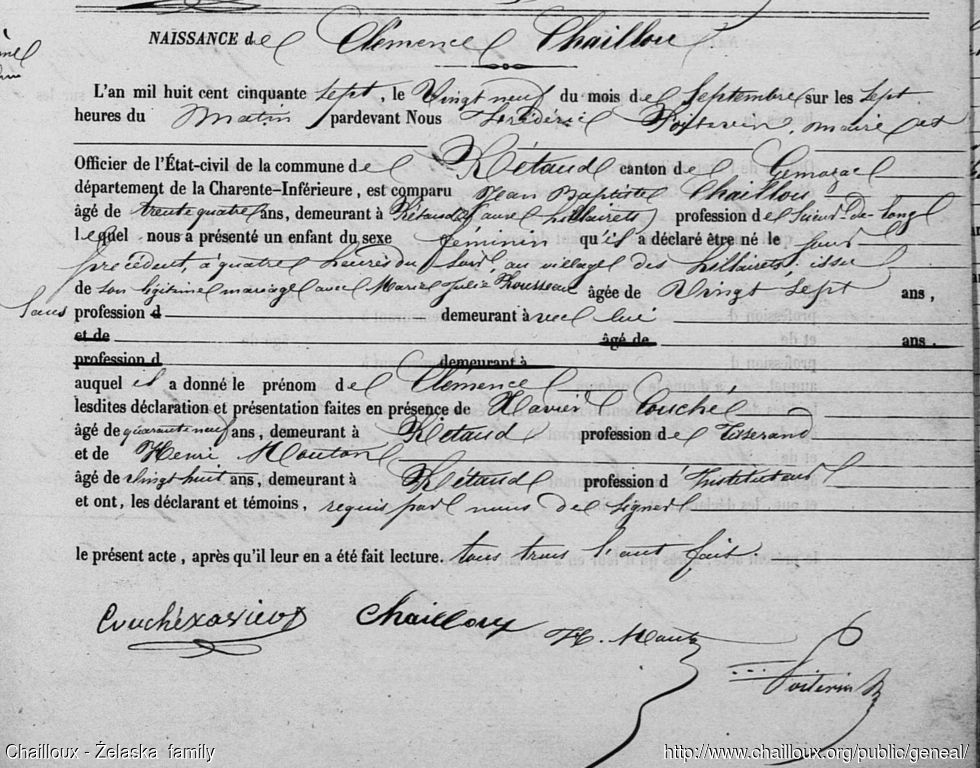 NAISSANCE de Clémence Chaillou
L'an mil huit cent cinquante sept, le Vingt neuf du mois de Septembre sur les Sept
heures du Matin pardevant Nous Frédéric Poitevin, maire et
Officier de l'État-civil de la commune de Rétaud canton de Gemozac
département de la Charente-Inférieure, est comparu Jean Baptiste Chaillou
âgé de trente quatre ans, demeurant à Rétaud aux hillairets profession de Scieur-de-long
lequel nous a présenté un enfant du sexe féminin qu'il a déclaré être né le jour
précédent, à quatre heures du soir, au village des hillairets, issu
de son légitime mariage avec Marie Julie Rousseau âgée de Vingt sept ans,
Sans profession d demeurant avec lui
et de âgé de ans.
profession d demeurant à
auquel il a donné le prénom de Clémence
lesdites déclaration et présentation faites en présence de Xavier Couché
âgé de quarante neuf ans, demeurant à Rétaud profession de Tisserand
et de Henri Mouton
âgé de vingt huit ans, demeurant à Rétaud profession d'Instituteur
et ont, les déclarant et témoins, requis par nous de signer
le présent acte, après qu'il leur en a été fait lecture. tous trois l'ont fait.
Couché xavier Chaillou H. Mouton
Poitevin
Chailloux - Želaska family http://www.chailloux.org/public/geneal/